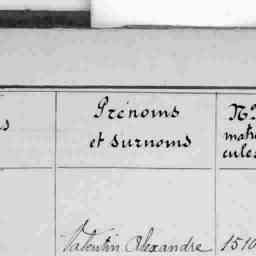 Prénoms
et surnoms
Nos
matri
cules
Valentin Alexandre 1510